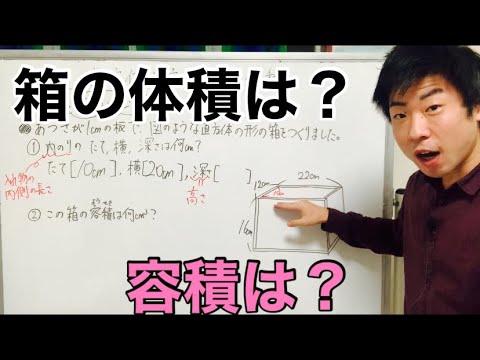 箱の体積は？
あつさが1cmの板で、図のような直方体の形の箱をつくりました。
①内のりの たて、横、深さは何cm？
たて[10cm]、横[20cm]、深さ[ ]
入れ物の
内側の長さ
高さ
②この箱の容積は何cm³？
ようせき
12cm
22cm
16cm
容積は？